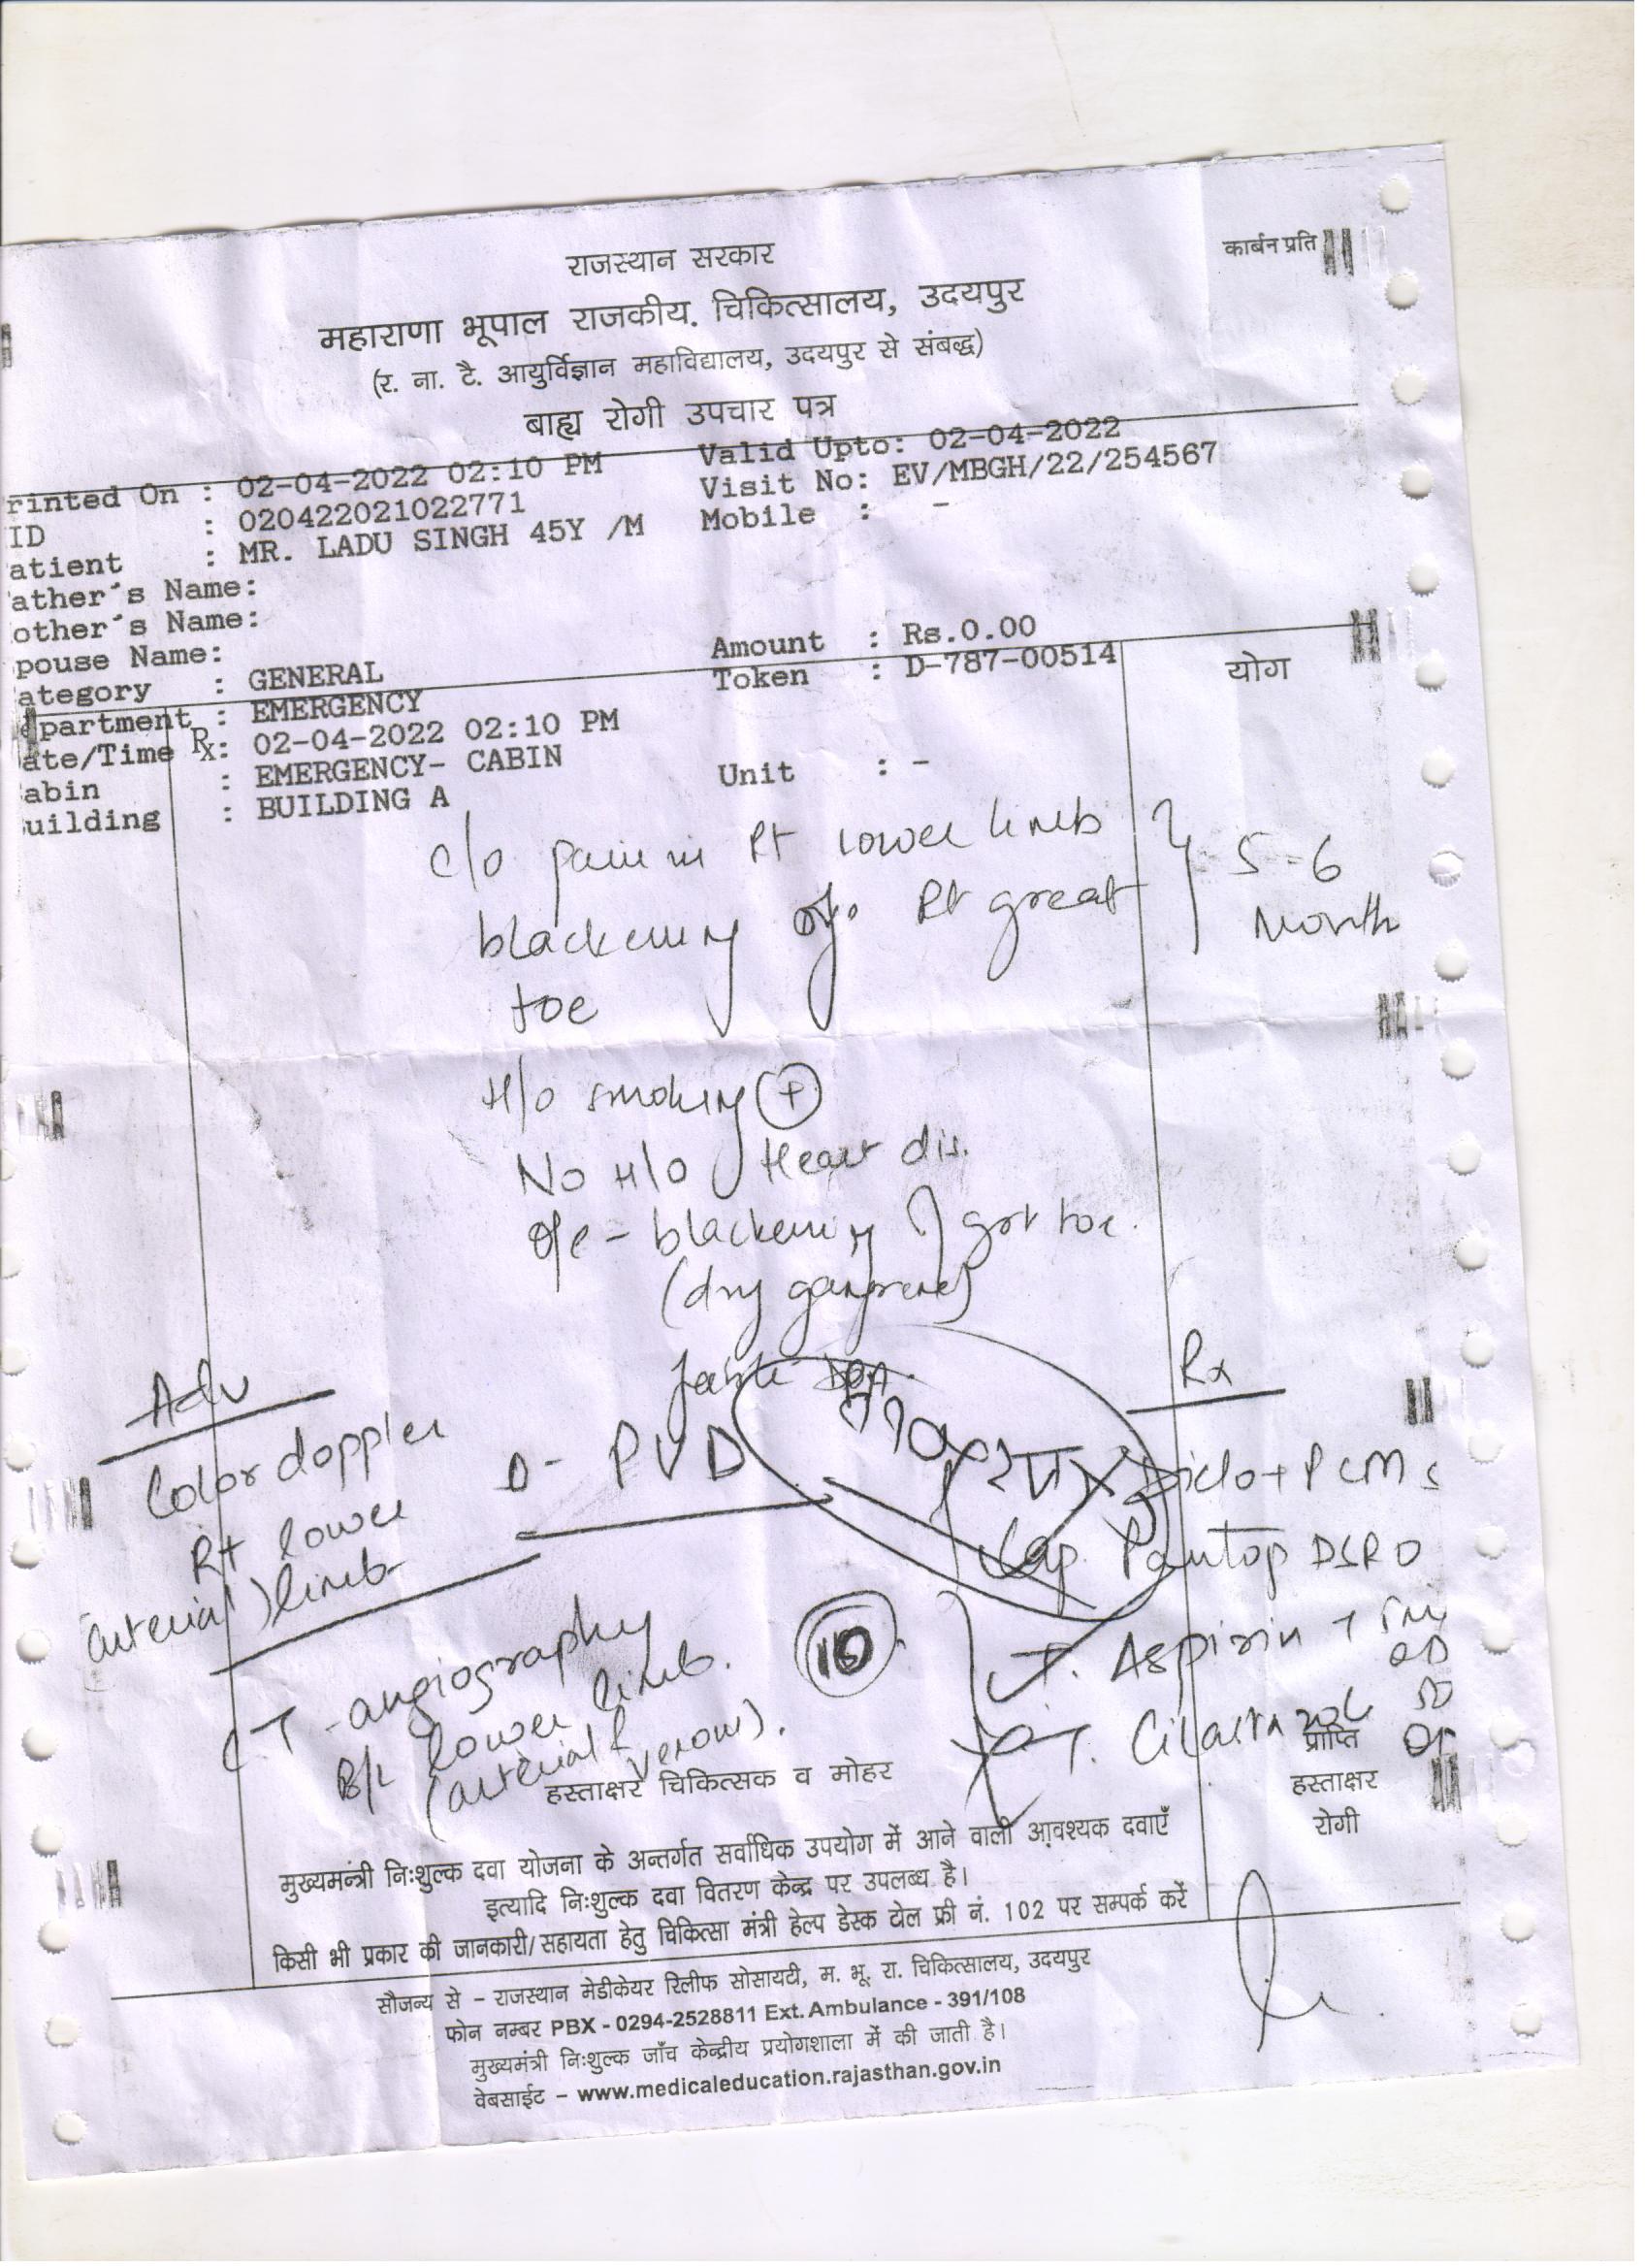 कार्बन प्रति
राजस्थान सरकार
महाराणा भूपाल राजकीय. चिकित्सालय, उदयपुर
(र. ना. टै. आयुर्विज्ञान महाविद्यालय, उदयपुर से संबद्ध)
बाह्य रोगी उपचार पत्र
rinted On : 02-04-2022 02:10 PM Valid Upto: 02-04-2022
ID : 020422021022771 Visit No: EV/MBGH/22/254567
atient : MR. LADU SINGH 45Y /M Mobile : -
ather's Name:
other's Name:
pouse Name: Amount : Rs.0.00
ategory : GENERAL Token : D-787-00514
partment : EMERGENCY
योग
ate/Time Rx: 02-04-2022 02:10 PM
abin : EMERGENCY- CABIN Unit : -
uilding : BUILDING A
c/o pain in Rt lower limb
blackening of Rt great
toe
5-6
Month
H/o smoking (+)
No H/o Heart dis.
o/e - blackening of grt toe.
(dry gangrene)
Adv
Color doppler
Rt lower
(arterial) limb
D- PVD
CT - angiography
B/L lower limb.
(arterial & venous).
10
Rx
Diclo + PCM
Cap. Pantop DSR OD
T. Aspirin
OD
हस्ताक्षर चिकित्सक व मोहर
प्राप्ति
हस्ताक्षर
रोगी
मुख्यमन्त्री निःशुल्क दवा योजना के अन्तर्गत सर्वाधिक उपयोग में आने वाली आवश्यक दवाएँ
इत्यादि निःशुल्क दवा वितरण केन्द्र पर उपलब्ध है।
किसी भी प्रकार की जानकारी/सहायता हेतु चिकित्सा मंत्री हेल्प डेस्क टोल फ्री नं. 102 पर सम्पर्क करें
सौजन्य से – राजस्थान मेडीकेयर रिलीफ सोसायटी, म. भू. रा. चिकित्सालय, उदयपुर
फोन नम्बर PBX - 0294-2528811 Ext. Ambulance - 391/108
मुख्यमंत्री निःशुल्क जाँच केन्द्रीय प्रयोगशाला में की जाती है।
वेबसाईट – www.medicaleducation.rajasthan.gov.in